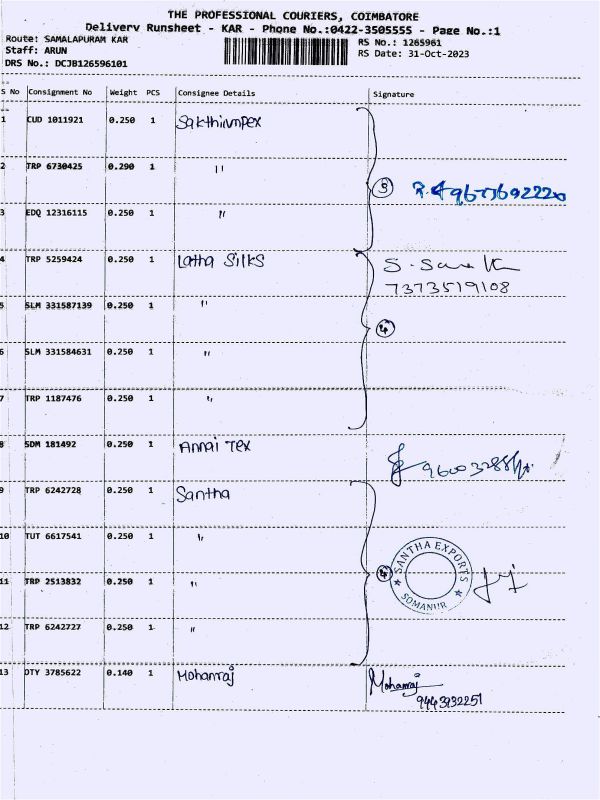 THE PROFESSIONAL COURIERS, COIMBATORE
Delivery Runsheet - KAR - Phone No.:0422-3505555 - Page No.:1
Route: SAMALAPURAM KAR
RS No.: 1265961
Staff: ARUN
RS Date: 31-Oct-2023
DRS No.: DCJB126596101
S No Consignment No Weight PCS Consignee Details Signature
1 CUD 1011921 0.250 1 Sakthiimpex
2 TRP 6730425 0.290 1 "
3
3 EDQ 12316115 0.250 1 "
4 TRP 5259424 0.250 1 Latha Silks
7373519108
5 SLM 331587139 0.250 1 "
4
6 SLM 331584631 0.250 1 "
7 TRP 1187476 0.250 1 "
8 SDM 181492 0.250 1 Annai Tex
9 TRP 6242728 0.250 1 Santha
10 TUT 6617541 0.250 1 "
4 SANTHA EXPORTS
SOMANUR
11 TRP 2513832 0.250 1 "
12 TRP 6242727 0.250 1 "
13 DTY 3785622 0.140 1 Mohanraj Mohanraj